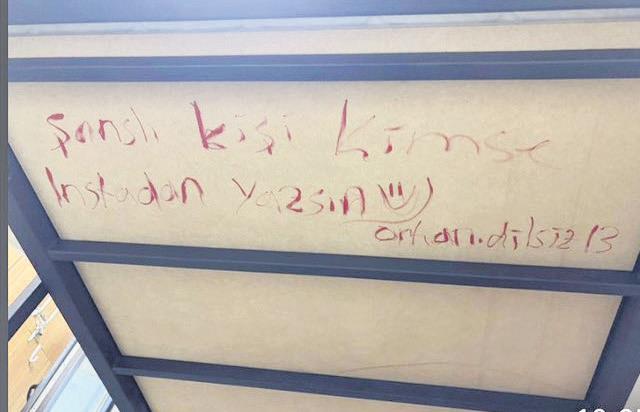 Şanslı kişi kimse
Instadan yazsın
orhan.dilsiz13